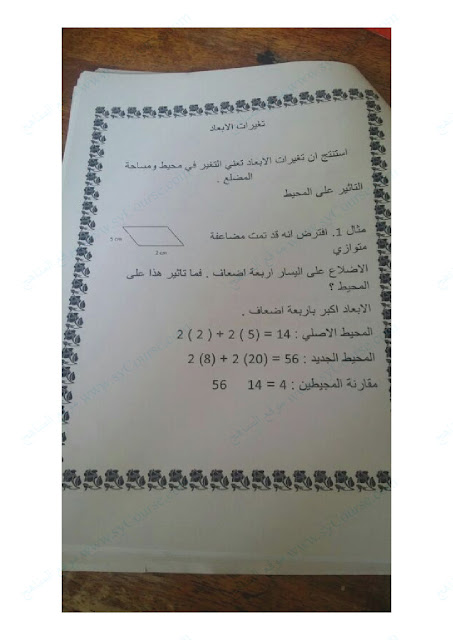 تغيرات الابعاد
استنتج ان تغيرات الابعاد تعني التغير في محيط ومساحة
المضلع .
التاثير على المحيط
مثال 1. افترض انه قد تمت مضاعفة
متوازي
5 cm
2 cm
الاضلاع على اليسار اربعة اضعاف . فما تاثير هذا على
المحيط ؟
الابعاد اكبر باربعة اضعاف .
المحيط الاصلي : 14 = (5 ) 2 + ( 2 ) 2
المحيط الجديد : 56 = (20) 2 + (8) 2
مقارنة المحيطين : 4 = 14 56